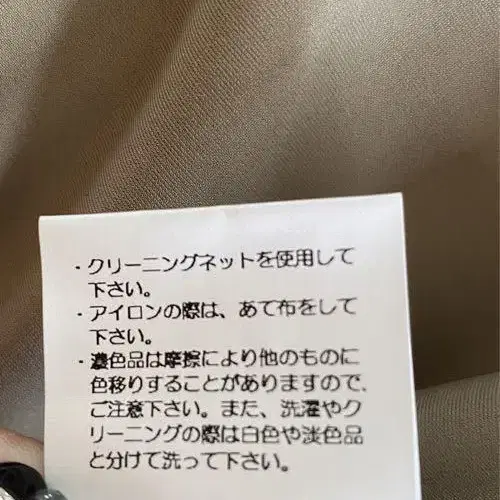 ・クリーニングネットを使用して
下さい。
・アイロンの際は、あて布をして
下さい。
・濃色品は摩擦により他のものに
色移りすることがありますので、
ご注意下さい。また、洗濯やク
リーニングの際は白色や淡色品
と分けて洗って下さい。